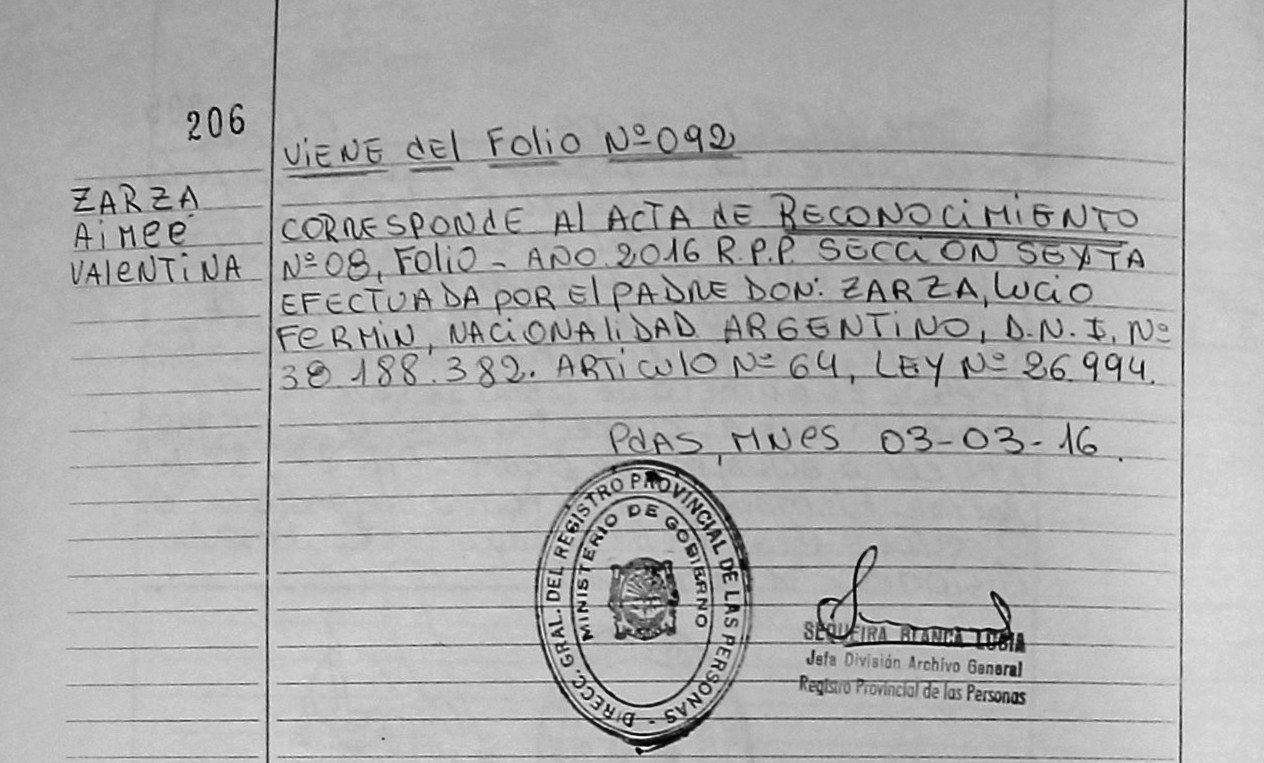 206
VIENE del Folio Nº 092
ZARZA
AiMEE
VALENTINA
CORRESPONDE Al ACTA dE RECONOCIMIENTO
Nº 08, Folio - AÑO 2016 R.P.P. SECCION SEXTA
EFECTUADA POR El PADRE DON: ZARZA, Lucio
FERMIN, NACIONALIDAD ARGENTINO, D.N.I. Nº
38.188.382. ARTICULO Nº 64, LEY Nº 26.994.
PdAS, MNES 03-03-16.
DIRECC. GRAL. DEL REGISTRO PROVINCIAL DE LAS PERSONAS -
MINISTERIO DE GOBIERNO
SEQUEIRA BLANCA LUCIA
Jefa División Archivo General
Registro Provincial de las Personas